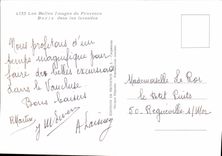 4135 Les Belles Images de Provence
Borie dans les lavandes
Nous profitons d'un
temps magnifique pour
faire des belles excursions
dans le Vaucluse
Bons baisers
Mademoiselle Le Bor
Le Petit Puits
50. Regneville s/Mer